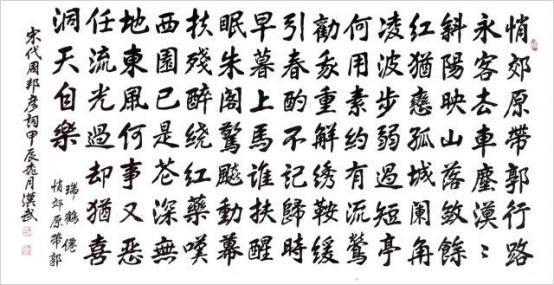 悄郊原帶郭行路
永客去車塵漠〻
斜陽映山落斂餘
紅猶戀孤城闌角
凌波步弱過短亭
何用素約有流鶯
勸我重解绣鞍緩
引春酌不記歸時
早暮上馬誰扶醒
眠朱阁驚飇動幕
扶殘醉绕紅藥嘆
西園已是花深無
地東風何事又惡
任流光過却猶喜
洞天自樂
瑞鶴僊
悄郊原帶郭
宋代周邦彦詞甲辰月漢武